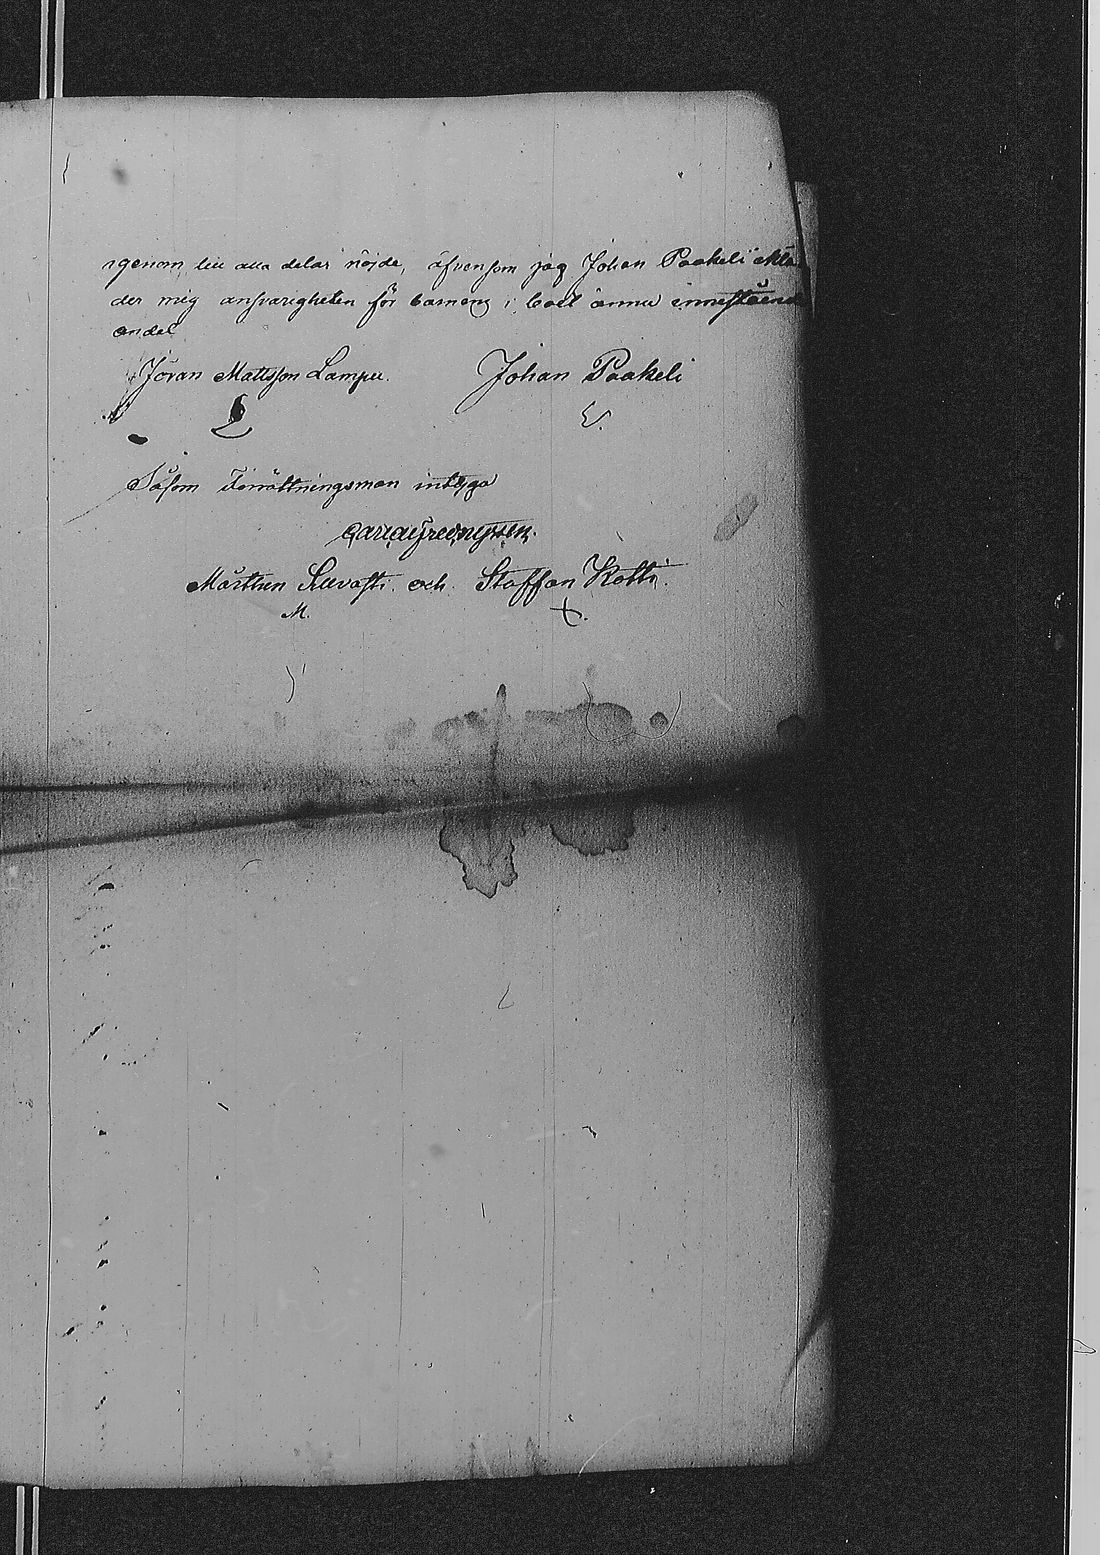 igenom till alla delar nöjde, äfvensom jag Johan Paakeli åkla
der mig ansvarigheten för barnens i boet ännu innestående
andel
Jöran Mattsson Lampu. Johan Paakeli
Såsom Förrättningsman intyga
Mårthen Sievasti. och. Staffan Kotti.
M.